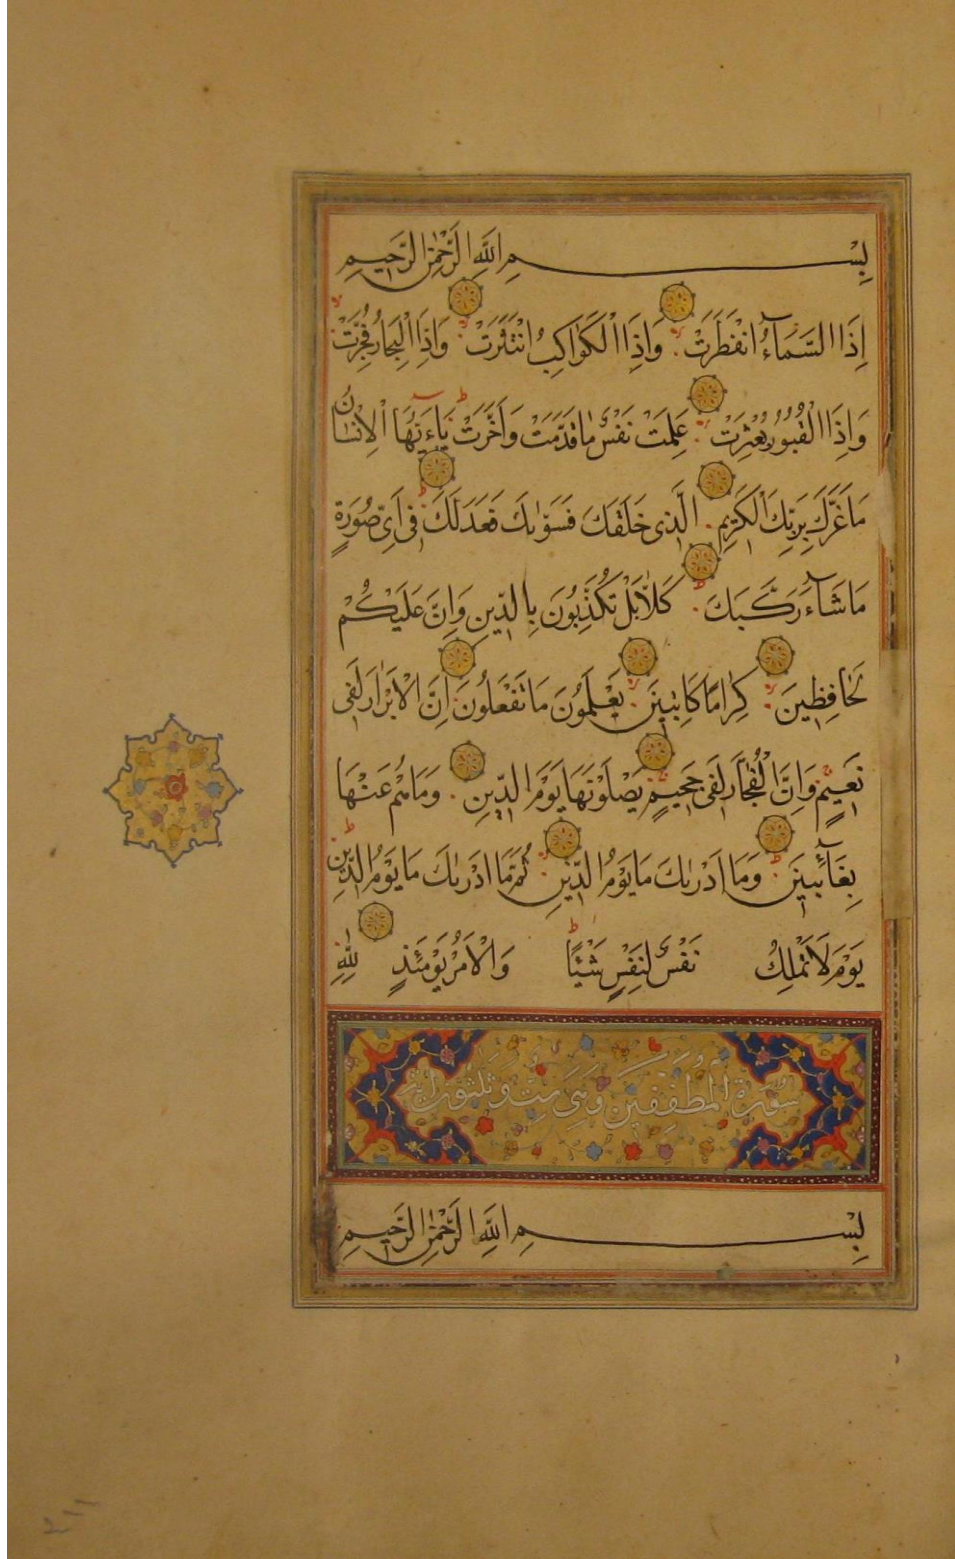 بِسْمِ اللَّهِ الرَّحْمٰنِ الرَّحِيمِ
إِذَا السَّمَآءُ انْفَطَرَتْ وَإِذَا الْكَوَاكِبُ انْتَثَرَتْ وَإِذَا الْبِحَارُ فُجِّرَتْ
وَإِذَا الْقُبُورُ بُعْثِرَتْ عَلِمَتْ نَفْسٌ مَا قَدَّمَتْ وَأَخَّرَتْ يَآءَيُّهَا الْإِنْسَانُ
مَا غَرَّكَ بِرَبِّكَ الْكَرِيمِ الَّذِى خَلَقَكَ فَسَوّٰىكَ فَعَدَلَكَ فِى أَىِّ صُورَةٍ
مَا شَآءَ رَكَّبَكَ كَلَّا بَلْ تُكَذِّبُونَ بِالدِّينِ وَإِنَّ عَلَيْكُمْ
لَحَافِظِينَ كِرَامًا كَاتِبِينَ يَعْلَمُونَ مَا تَفْعَلُونَ إِنَّ الْأَبْرَارَ لَفِى
نَعِيمٍ وَإِنَّ الْفُجَّارَ لَفِى جَحِيمٍ يَصْلَوْنَهَا يَوْمَ الدِّينِ وَمَا هُمْ عَنْهَا
بِغَآئِبِينَ وَمَا أَدْرٰىكَ مَا يَوْمُ الدِّينِ ثُمَّ مَا أَدْرٰىكَ مَا يَوْمُ الدِّينِ
يَوْمَ لَا تَمْلِكُ نَفْسٌ لِنَفْسٍ شَيْئًا وَالْأَمْرُ يَوْمَئِذٍ لِلّٰهِ
سُورَةُ الْمُطَفِّفِينَ وَهِىَ سِتٌّ وَثَلٰثُونَ
بِسْمِ اللَّهِ الرَّحْمٰنِ الرَّحِيمِ